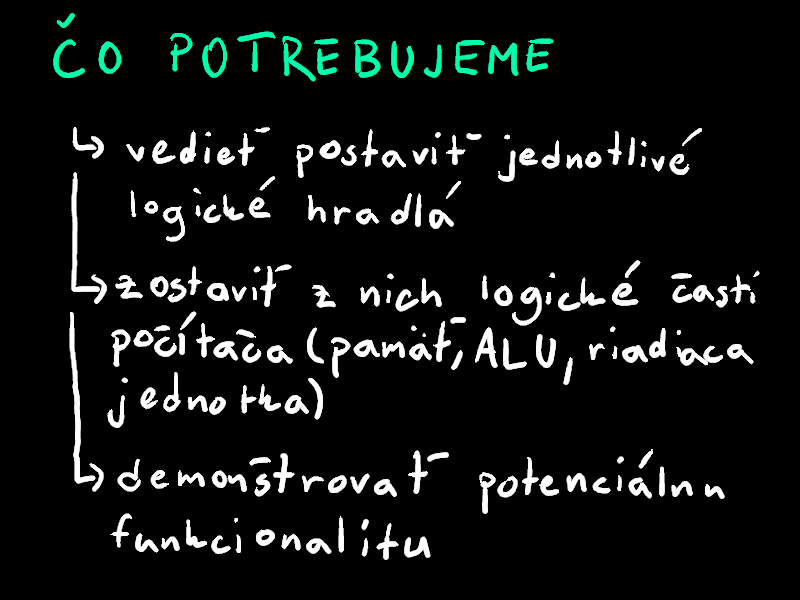 ČO POTREBUJEME
↳ vedieť postaviť jednotlivé
logické hradlá
↳ zostaviť z nich logické časti
počítača (pamäť, ALU, riadiaca
jednotka)
↳ demonštrovať potenciálnu
funkcionalitu